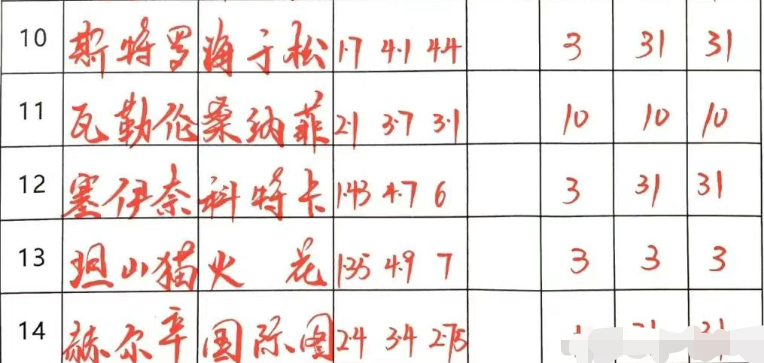 10 斯特罗 海于松 1.7 4.1 4.4 3 31 31
11 瓦勒伦 桑纳菲 2.1 3.7 3.1 10 10 10
12 塞伊奈 科特卡 1.43 4.7 6 3 31 31
13 坦山猫 火花 1.35 4.9 7 3 3 3
14 赫尔辛 国际图 2.4 3.4 2.75 31